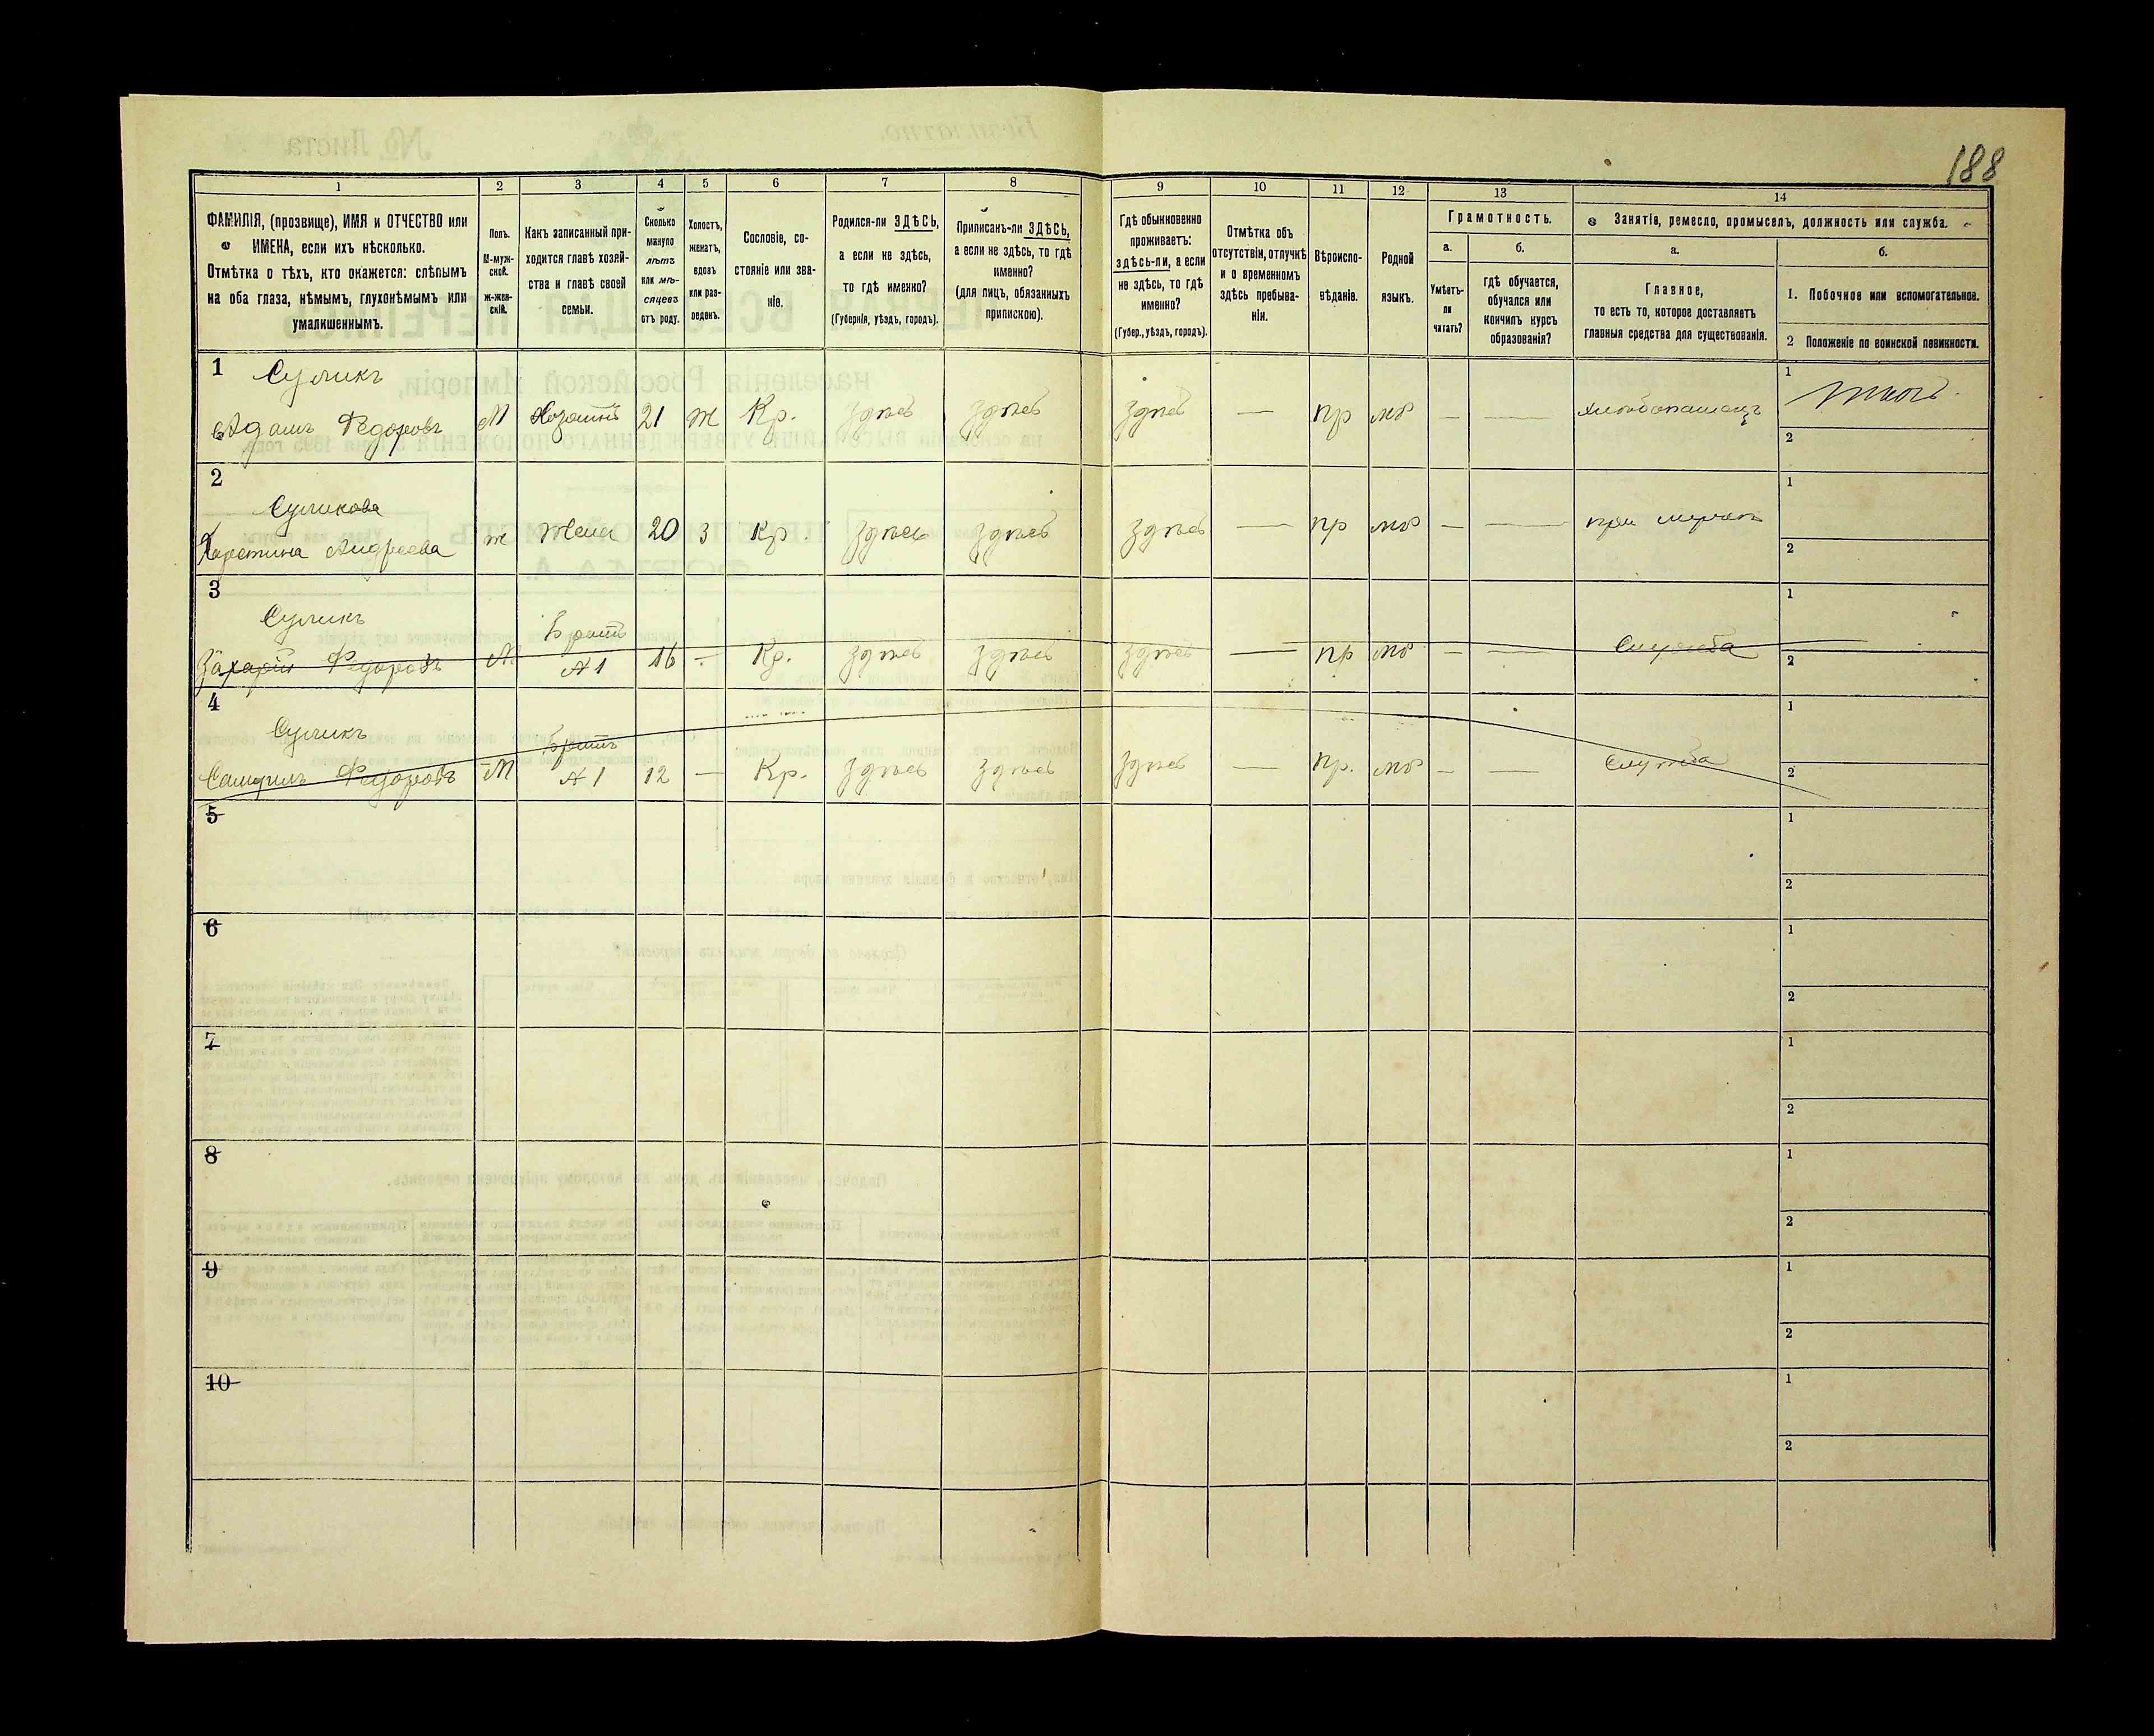 188
1 2 3 4 5 6 7 8 9 10 11 12 13 14
ФАМИЛІЯ, (прозвище), ИМЯ и ОТЧЕСТВО или
ИМЕНА, если ихъ нѣсколько.
Отмѣтка о тѣхъ, кто окажется: слѣпымъ
на оба глаза, нѣмымъ, глухонѣмымъ или
умалишеннымъ.
Полъ.
М-муж-
ской.
ж-жен-
скій.
Какъ записанный при-
ходится главѣ хозяй-
ства и главѣ своей
семьи.
Сколько
минуло
лѣтъ
или мѣ-
сяцевъ
отъ роду.
Холостъ,
женатъ,
вдовъ
или раз-
веденъ.
Сословіе, со-
стояніе или зва-
ніе.
Родился-ли ЗДѢСЬ,
а если не здѣсь,
то гдѣ именно?
(Губернія, уѣздъ, городъ).
Приписанъ-ли ЗДѢСЬ,
а если не здѣсь, то гдѣ
именно?
(для лицъ, обязанныхъ
припискою).
Гдѣ обыкновенно
проживаетъ:
здѣсь-ли, а если
не здѣсь, то гдѣ
именно?
(Губер., уѣздъ, городъ).
Отмѣтка объ
отсутствіи, отлучкѣ
и о временномъ
здѣсь пребыва-
ніи.
Вѣроиспо-
вѣданіе.
Родной
языкъ.
Грамотность.
а.
Умѣетъ-
ли
читать?
б.
гдѣ обучается,
обучался или
кончилъ курсъ
образованія?
Занятіе, ремесло, промыселъ, должность или служба.
а.
Главное,
то есть то, которое доставляетъ
главныя средства для существованія.
б.
1. Побочное или вспомогательное.
2 Положеніе по воинской повинности.
1 Суликъ
Адамъ Ѳедоровъ М Хозяинъ 21 Ж Кр. Здѣсь Здѣсь Здѣсь — пр — — Хлѣбопашецъ 1
2
2 Суликова
Андреева ж Жена 20 З Кр. Здѣсь Здѣсь Здѣсь — пр — — при 1
2
3 Суликъ
Захарій Ѳедоровъ М Братъ
№ 1 16 - Кр. Здѣсь Здѣсь Здѣсь — пр — — 1
2
4 Суликъ
Ѳедоровъ М Братъ
№ 1 12 — Кр. Здѣсь Здѣсь Здѣсь — пр. — — Служба 1
2
5 1
2
6 1
2
7 1
2
8 1
2
9 1
2
10 1
2